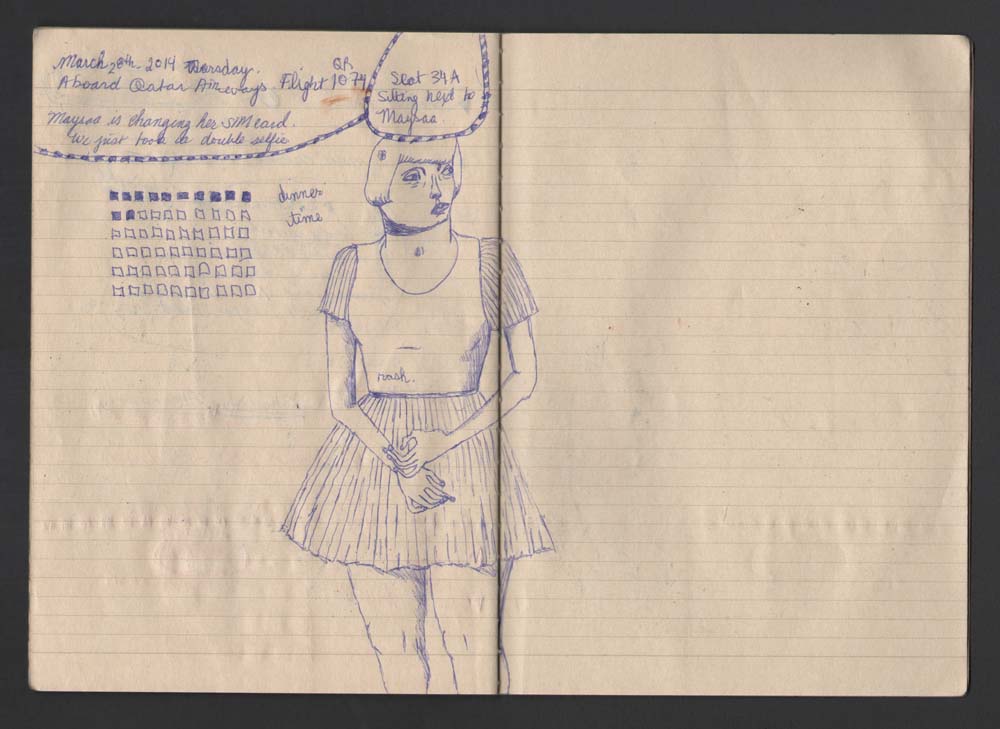 March 28th 2014 Thursday.
Aboard Qatar Airways. Flight QR 1074
Maysaa is changing her SIM card.
We just took a double selfie
Seat 34A
Sitting next to
Maysaa
dinner
time
rash.